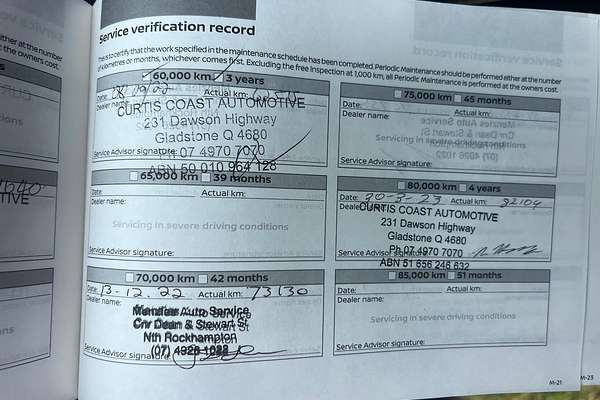 Service verification record
This is to certify that the work specified in the maintenance schedule has been completed. Periodic Maintenance should be performed either at the number
of kilometres or months, whichever comes first. Excluding the free Inspection at 1,000 km, all Periodic Maintenance is performed at the owners cost.
60,000 km 3 years
Date: Actual km:
Dealer name:
CURTIS COAST AUTOMOTIVE
231 Dawson Highway
Gladstone Q 4680
Ph 07 4970 7070
Service Advisor signature:
ABN 50 010 964 128
65,000 km 39 months
Date: Actual km:
Dealer name:
Servicing in severe driving conditions
Service Advisor signature:
70,000 km 42 months
Date: 13-12.22 Actual km: 73130
Dealer name:
Menzies Auto Service
Cnr Dean & Stewart St
Nth Rockhampton
(07)
Service Advisor signature:
75,000 km 45 months
Date: Actual km:
Dealer name:
Servicing in severe driving conditions
Service Advisor signature:
80,000 km 4 years
Date: 30-3-23 Actual km: 92104
Dealer
CURTIS COAST AUTOMOTIVE
231 Dawson Highway
Gladstone Q 4680
Ph 07 4970 7070
Service Advisor signature:
ABN 51 656 246 632
85,000 km 51 months
Date: Actual km:
Dealer name:
Servicing in severe driving conditions
Service Advisor signature:
M-21
M-23
at the number
the owners cost.
TIVE